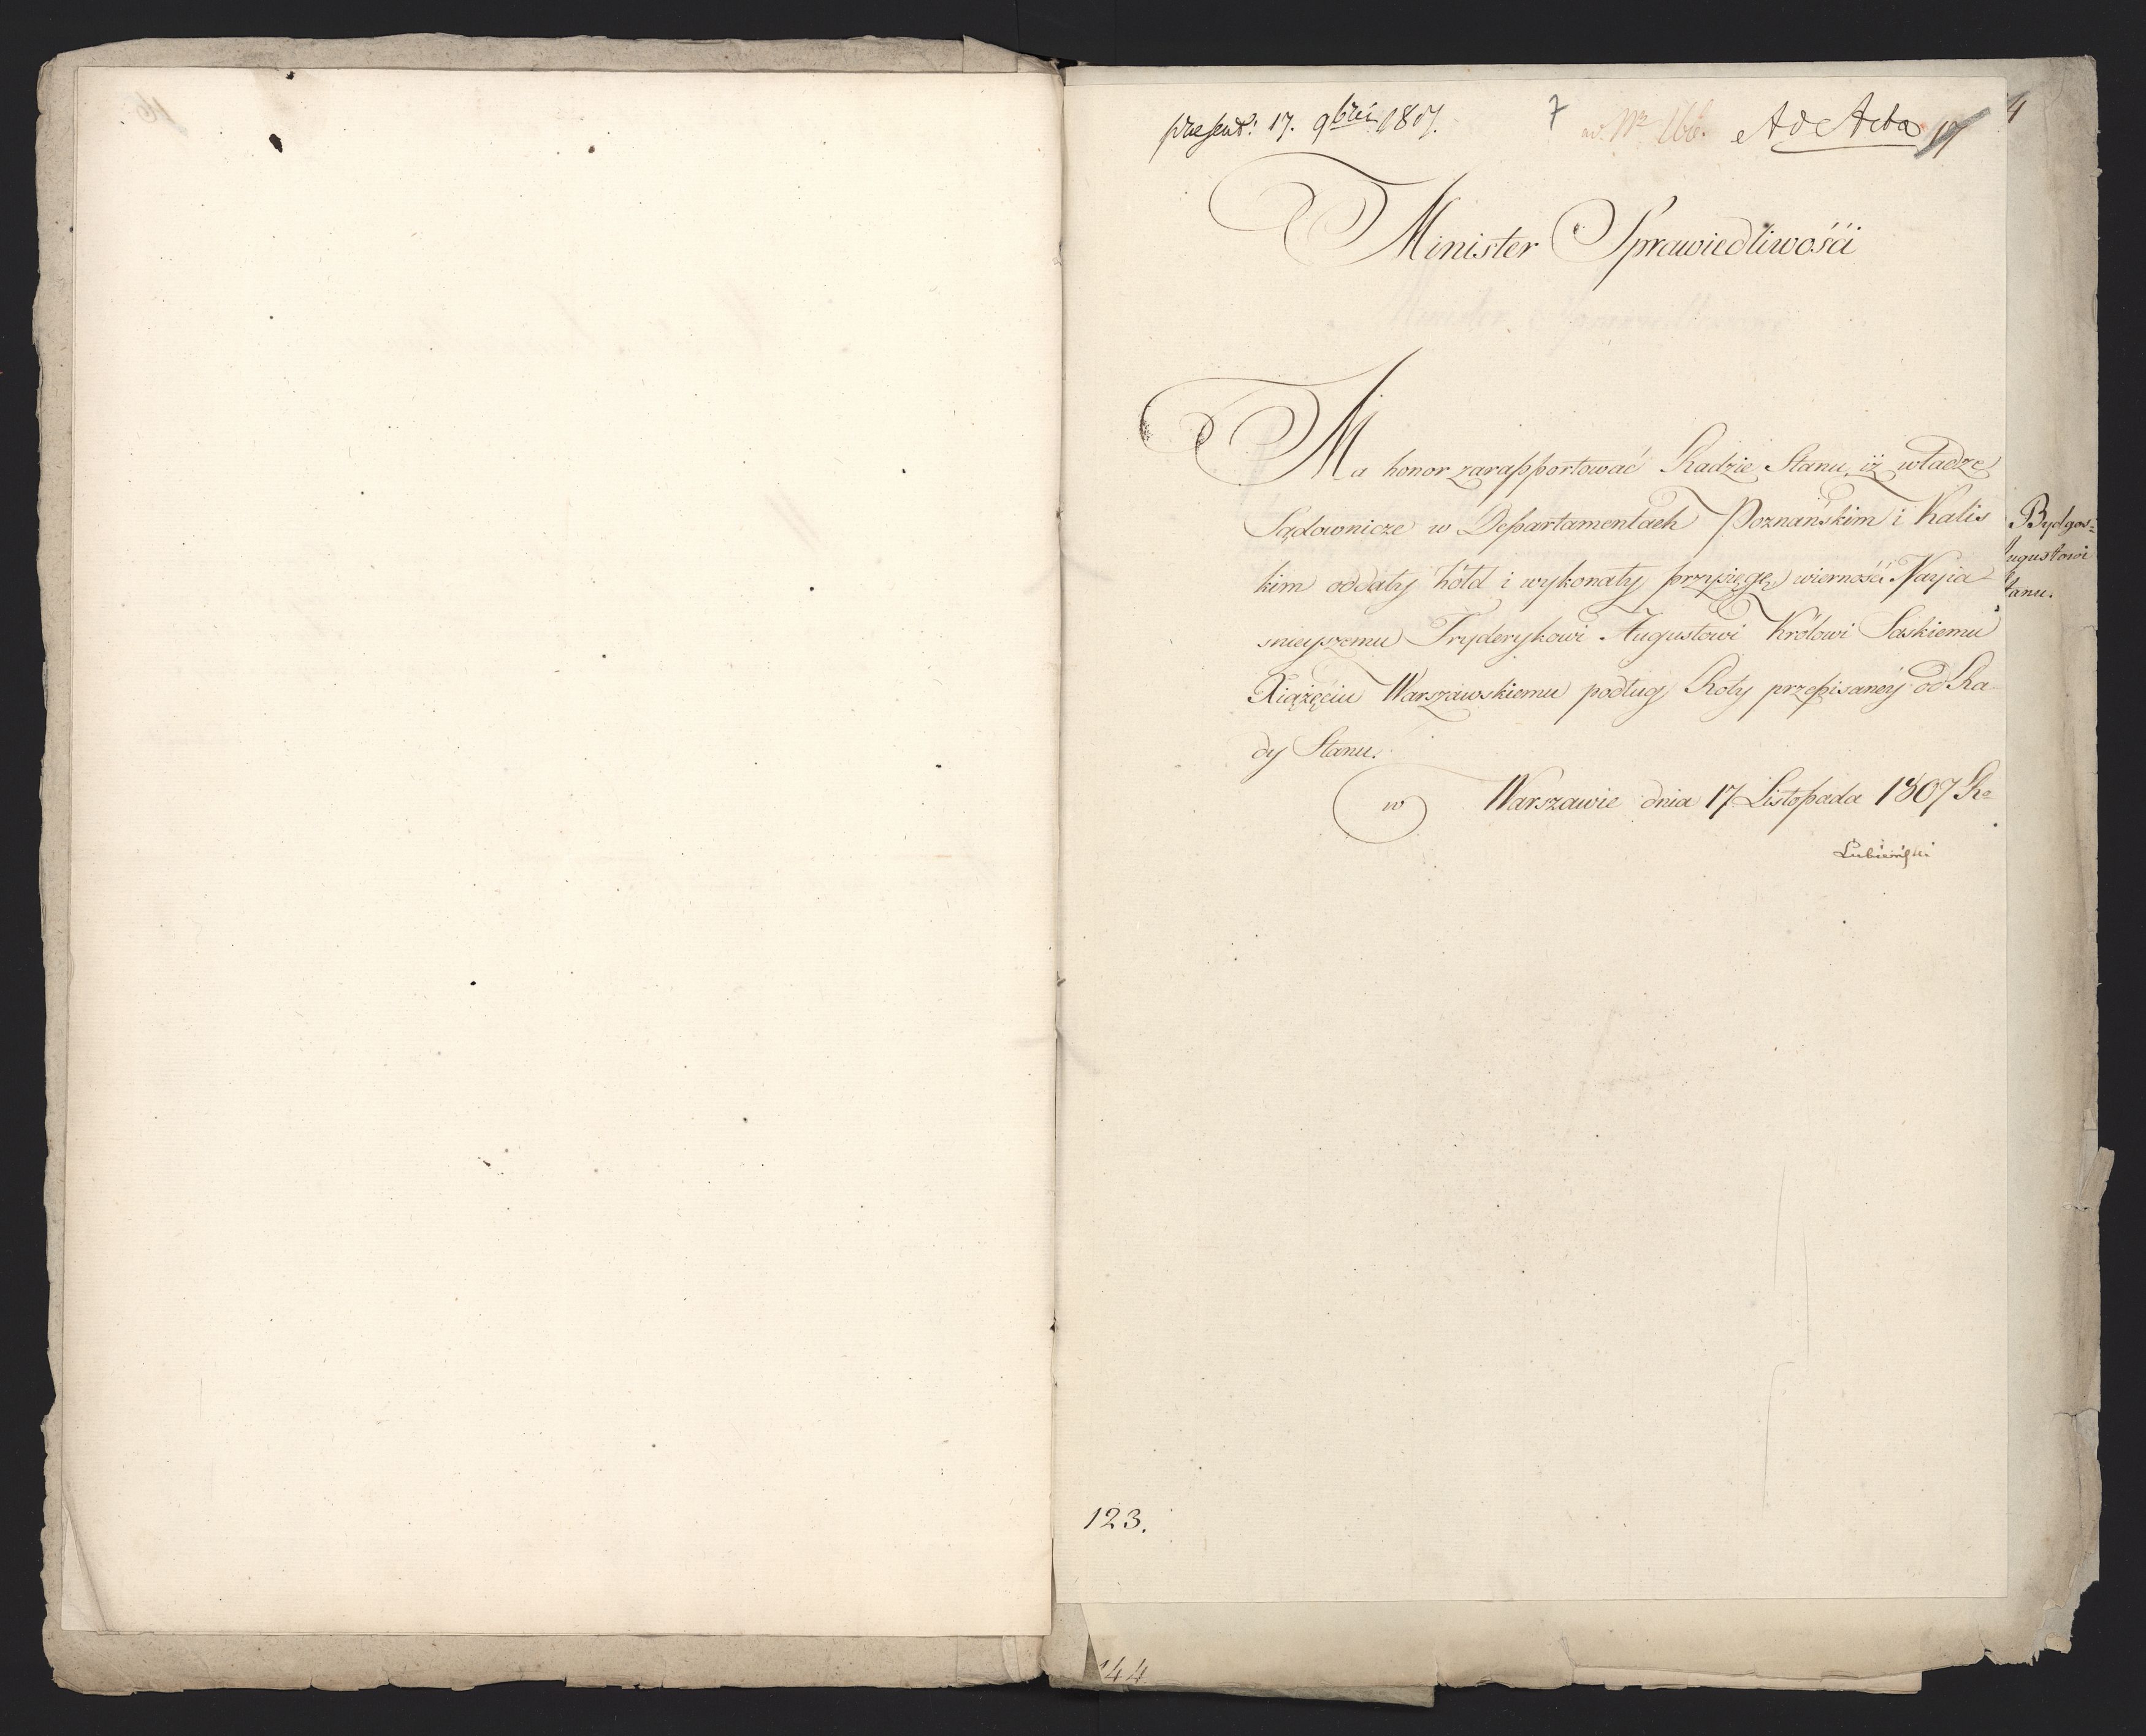 præsent: 17. 9bris 1807.
7
ad. Nr
Ad Acta
17
Minister Sprawiedliwości
Ma honor zarapportować Radzie Stanu, iż władze
Sądownicze w Departamentach Poznańskim i Kalis
kim oddały hołd i wykonały przysięgę wierności Nayia
snieyszemu Fryderykowi Augustowi Królowi Saskiemu
Xiążęciu Warszawskiemu podług Roty przepisaney od Ra-
dy Stanu.
w Warszawie dnia 17 Listopada 1807 Ro
Lubieński
Bydgos=
ugustowi
tanu.
123.
144